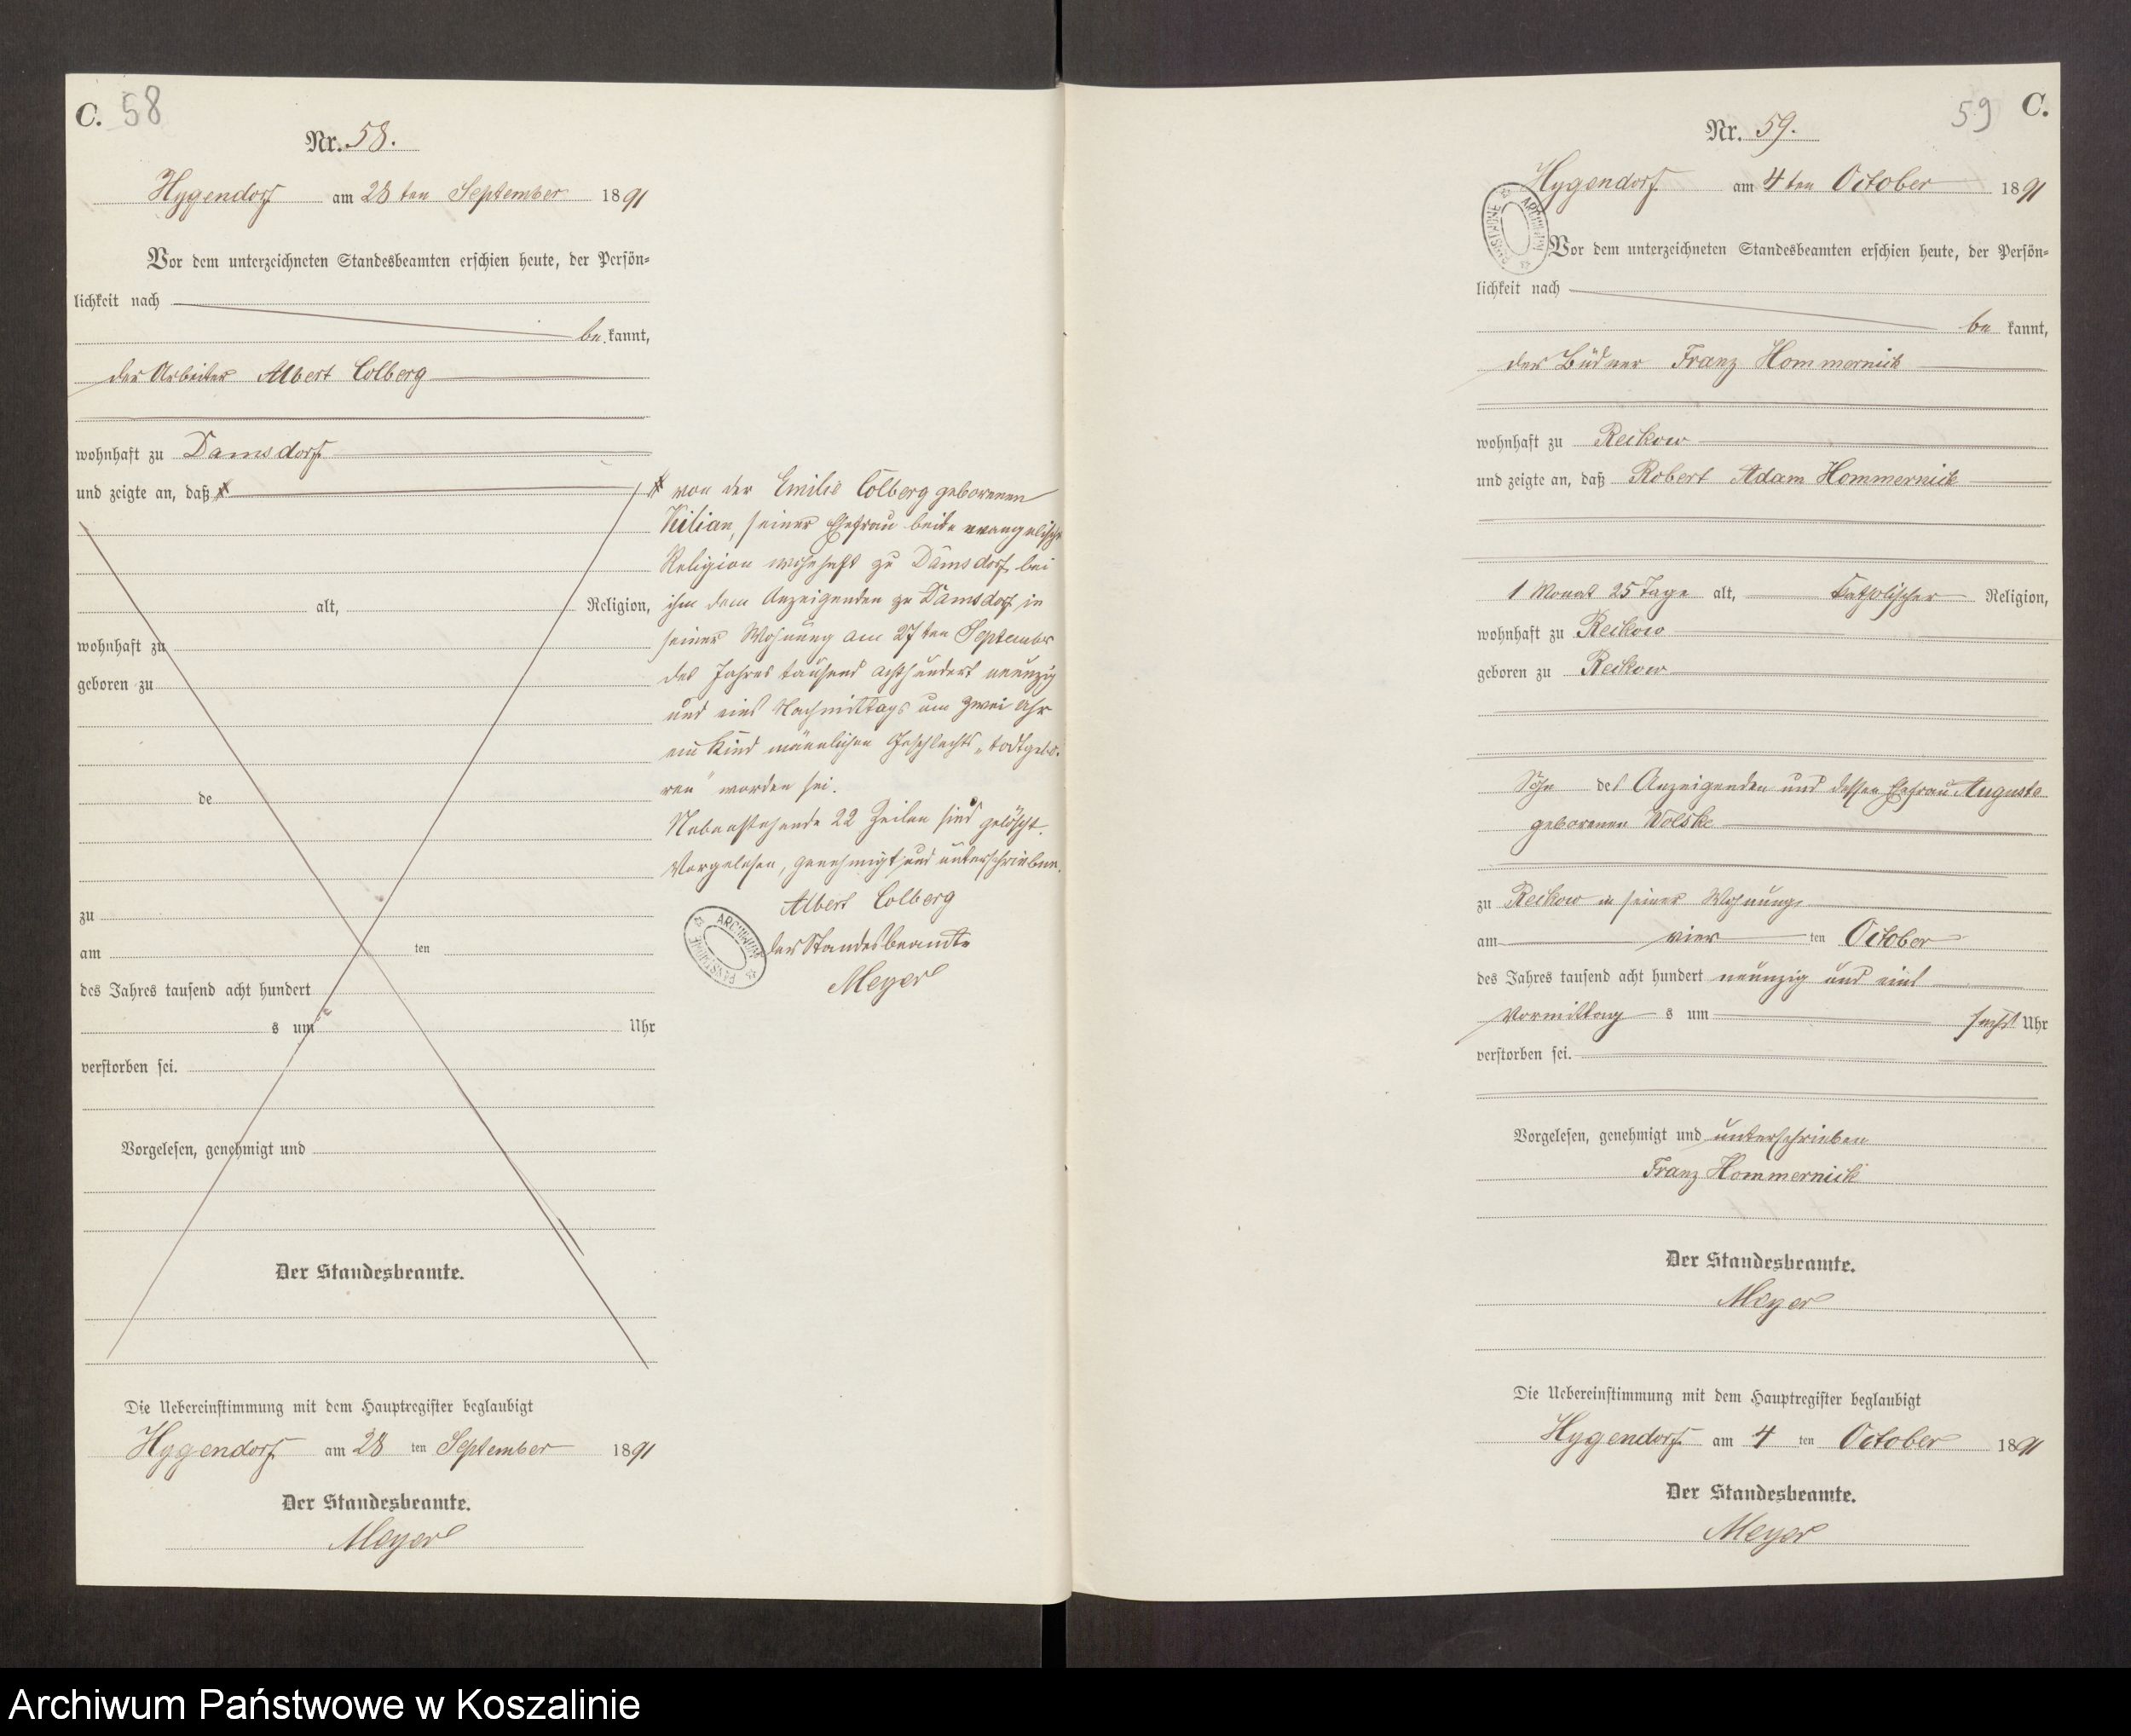 C. 58
Nr. 58.
Hygendorf am 28 ten September 1891
Vor dem unterzeichneten Standesbeamten erschien heute, der Persön-
lichkeit nach
be kannt,
der Arbeiter Albert Colberg
wohnhaft zu Damsdorf
und zeigte an, daß
alt, Religion,
wohnhaft zu
geboren zu
de
zu
am ten
des Jahres tausend acht hundert
s um Uhr
verstorben sei.
Vorgelesen, genehmigt und
Der Standesbeamte.
Die Uebereinstimmung mit dem Hauptregister beglaubigt
Hygendorf am 28 ten September 1891
Der Standesbeamte.
Meyer
von der Emilie Colberg geborenen
Kilian, seiner Ehefrau beide evangelischer
Religion wohnhaft zu Damsdorf bei
ihm dem Anzeigenden zu Damsdorf in
seiner Wohnung am 27 ten September
des Jahres tausend achthundert neunzig
und eins Nachmittags um zwei Uhr
ein Kind männlichen Geschlechts „todtgebo-
ren" worden sei.
Nebenstehende 22 Zeilen sind gelöscht.
Vorgelesen, genehmigt und unterschrieben.
Albert Colberg
der Standesbeamte
Meyer
ARCHIWUM PAŃSTWOWE
59 C.
Nr. 59.
Hygendorf am 4 ten October 1891
ARCHIWUM PAŃSTWOWE
Vor dem unterzeichneten Standesbeamten erschien heute, der Persön-
lichkeit nach
be kannt,
der Büdner Franz Hommernick
wohnhaft zu Reckow
und zeigte an, daß Robert Adam Hommernick
1 Monat 25 Tage alt, katholischer Religion,
wohnhaft zu Reckow
geboren zu Reckow
Sohn des Anzeigenden und dessen Ehefrau Auguste
geborenen Wolske
zu Reckow in seiner Wohnung
am vier ten October
des Jahres tausend acht hundert neunzig und eins
Vormittag s um sechs Uhr
verstorben sei.
Vorgelesen, genehmigt und unterschrieben
Franz Hommernick
Der Standesbeamte.
Meyer
Die Uebereinstimmung mit dem Hauptregister beglaubigt
Hygendorf am 4 ten October 1891
Der Standesbeamte.
Meyer
Archiwum Państwowe w Koszalinie